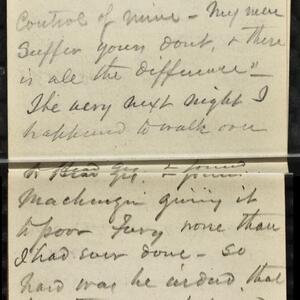 Control of mine - My men
Suffer yours dont, & there
is all the difference"-
The very next night I
happened to walk over
to & found
Mackenzie giving it
to poor Fury more than
I had ever done - So
hard was he indeed, that